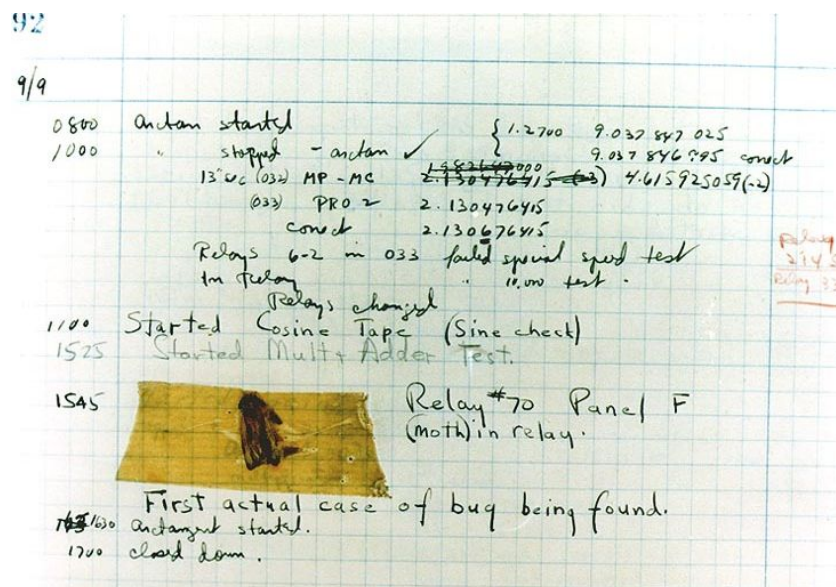 92
9/9
0800 arctan started { 1.2700 9.037 847 025
1000 " stopped - arctan ✓ 9.037 846 795 correct
13" sec (032) MP - MC 2.130476415 4.615925059(-2)
(033) PRO 2 2.130476415
correct 2.130676415
Relays 6-2 in 033 failed special speed test
In Relay " 10,000 test.
Relays changed
1100 Started Cosine Tape (Sine check)
1525 Started Mult+ Adder Test.
1545 Relay #70 Panel F
(moth) in relay.
First actual case of bug being found.
1630 arctangent started.
1700 closed down.
Relay
Relay